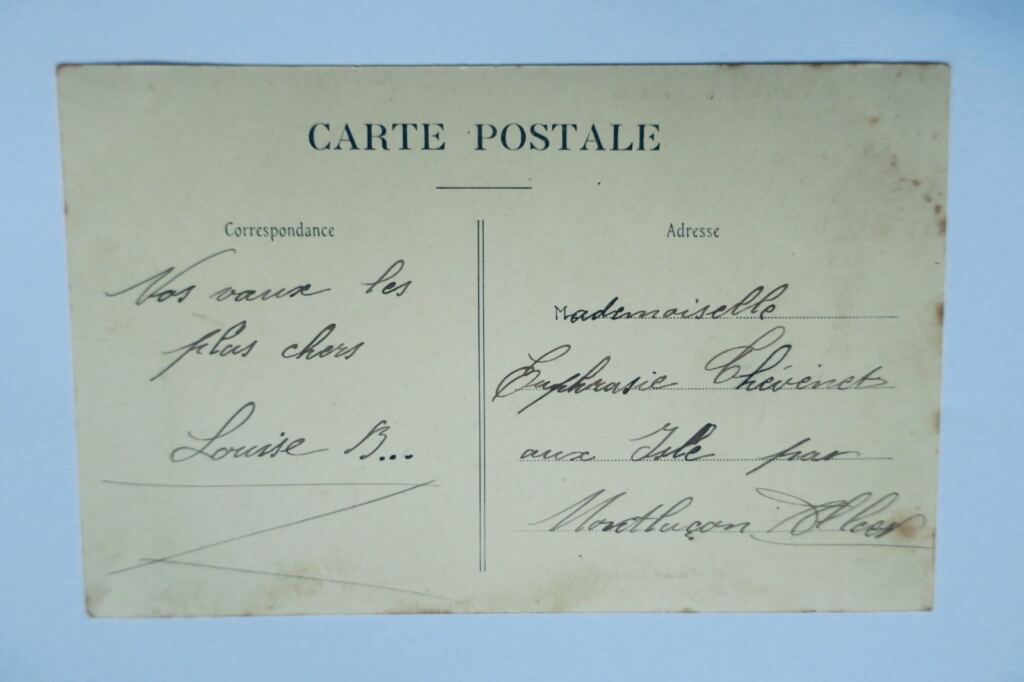 CARTE POSTALE
Correspondance
Vos vœux les
plus chers
Louise B...
Adresse
Mademoiselle
Euphrasie Thévenet
aux Isle par
Montluçon Allier